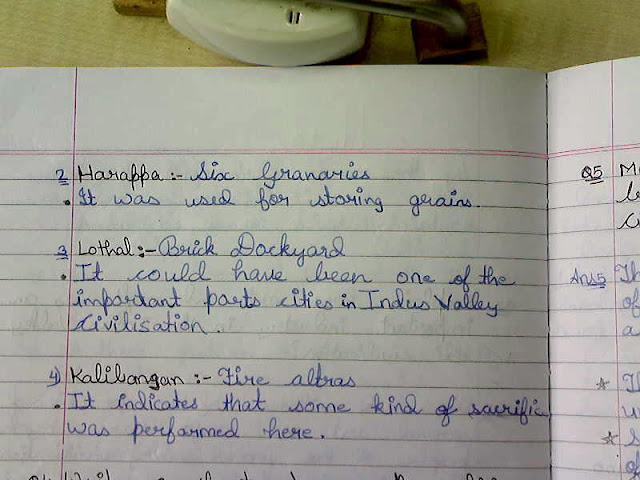 2 Harappa :- Six Granaries
• It was used for storing grains.
3 Lothal :- Brick Dockyard
• It could have been one of the
impordant parts cities in Indus Valley
Civilisation.
4) Kalibangan :- Fire altras
• It indicates that some kind of sacrific
was perfarmed here.
Q5
Ans5 Th
of
a